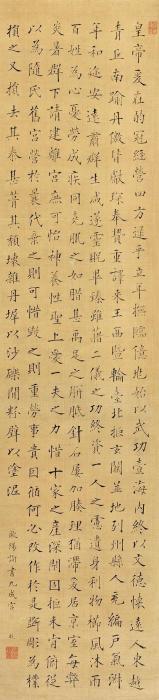 皇帝爰在弱冠經營四方逮乎立年撫臨億兆始以武功壹海內終以文德懷遠人東越
青丘南踰丹徼皆獻琛奉贄重譯來王西暨輪臺北拒玄闕並地列州縣人充編戶氣淑
年和迩安遠肅群生咸遂靈貺畢臻雖藉二儀之功終資一人之慮遺身利物櫛風沐雨
百姓為心憂勞成疾同堯肌之如腊甚禹足之胼胝針石屢加腠理猶滯爰居京室每弊
炎暑群下請建離宮庶可怡神養性聖上愛一夫之力惜十家之產深閉固拒未肯俯從
以為隨氏舊宮營於曩代棄之則可惜毀之則重勞事貴因循何必改作於是斵彫為樸
損之又損去其泰甚葺其頹壞雜丹墀以沙礫間粉壁以塗泥
歐陽詢書九成宮